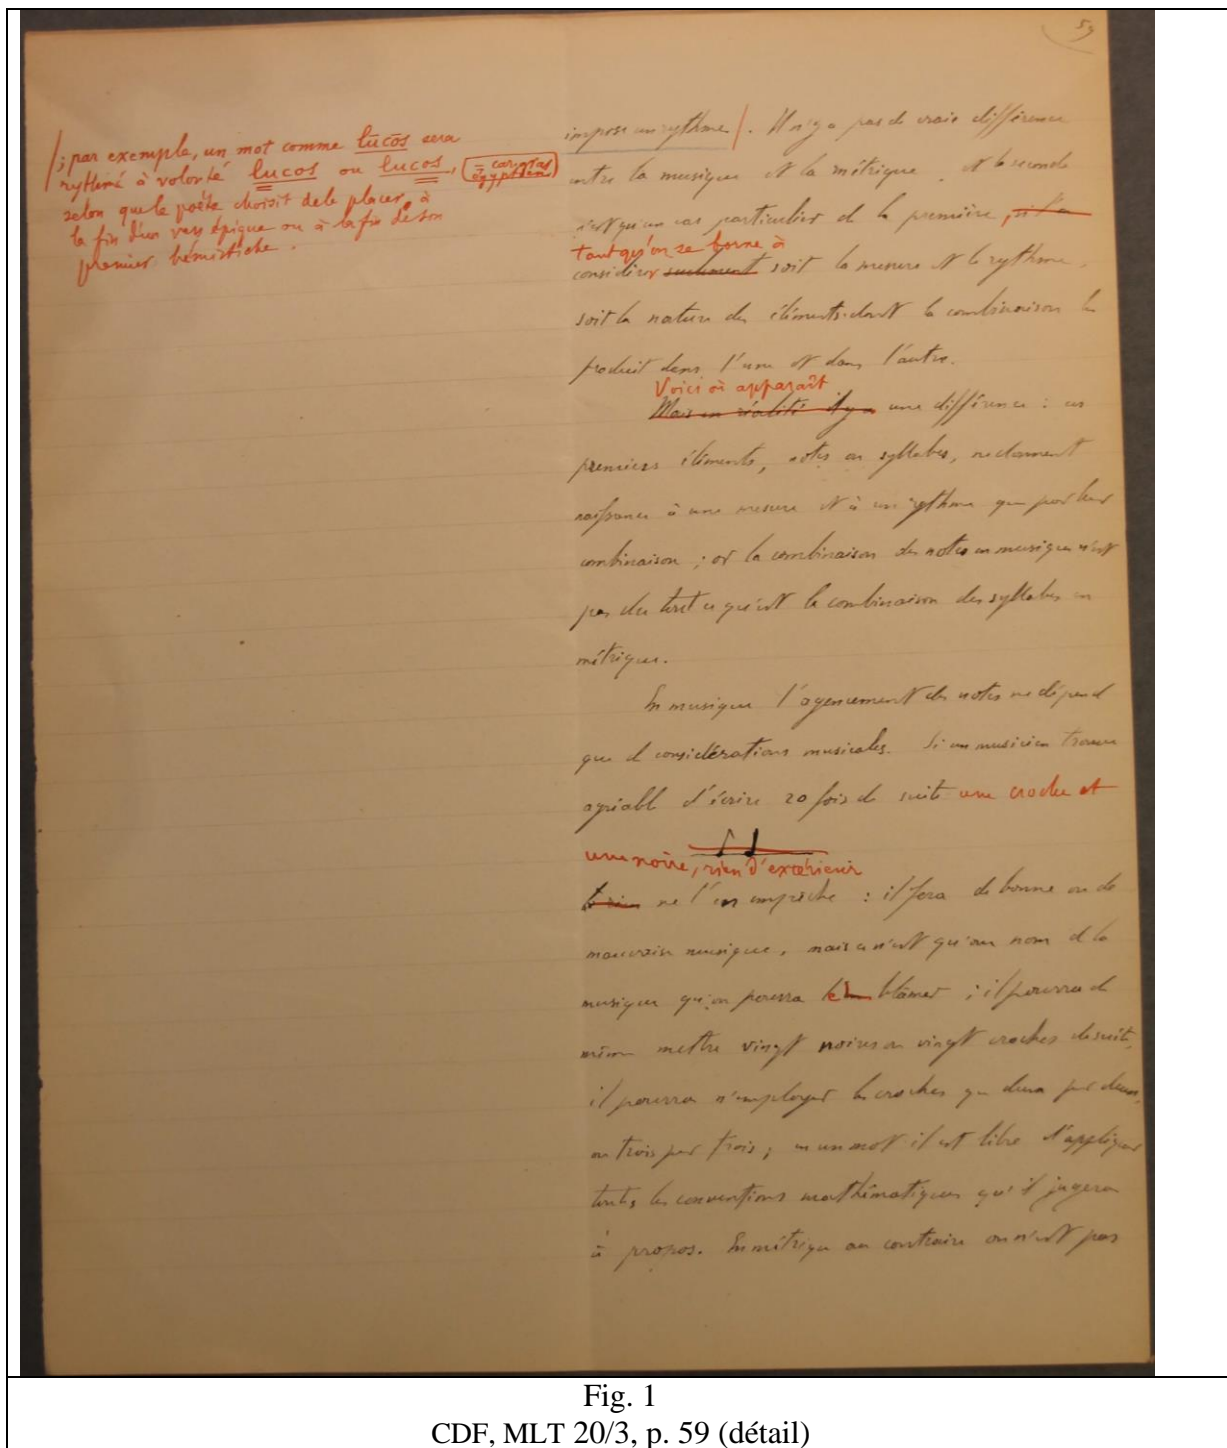 59
/; par exemple, un mot comme lūcōs sera
rythmé à volonté lucos ou lucos,
selon que le poète choisit de le placer à
la fin d'un vers épique ou à la fin de son
premier hémistiche.
impose un rythme /. Il n'y a pas de vraie différence
entre la musique et la métrique, et la seconde
n'est qu'un cas particulier de la première, si l'on
tant qu'on se borne à
considérer seulement soit la mesure et le rythme,
soit la nature des éléments dont la combinaison les
produit dans l'une et dans l'autre.
Voici où apparaît
Mais en réalité il y a une différence : ces
premiers éléments, notes ou syllabes, ne donnent
naissance à une mesure et à un rythme que par leur
combinaison ; or la combinaison des notes en musique n'est
pas du tout ce qu'est la combinaison des syllabes en
métrique.
En musique l'agencement des notes ne dépend
que de considérations musicales. Si un musicien trouve
agréable d'écrire 20 fois de suite une croche et
♪ ♩
une noire, rien d'extérieur
ne l'en empêche : il fera de bonne ou de
mauvaise musique, mais ce n'est qu'au nom de la
musique qu'on pourra le blâmer ; il pourra de
même mettre vingt noires ou vingt croches de suite,
il pourra n'employer les croches que deux par deux,
ou trois par trois ; en un mot il est libre d'appliquer
toutes les conventions mathématiques qu'il jugera
à propos. En métrique au contraire on n'est pas
Fig. 1
CDF, MLT 20/3, p. 59 (détail)